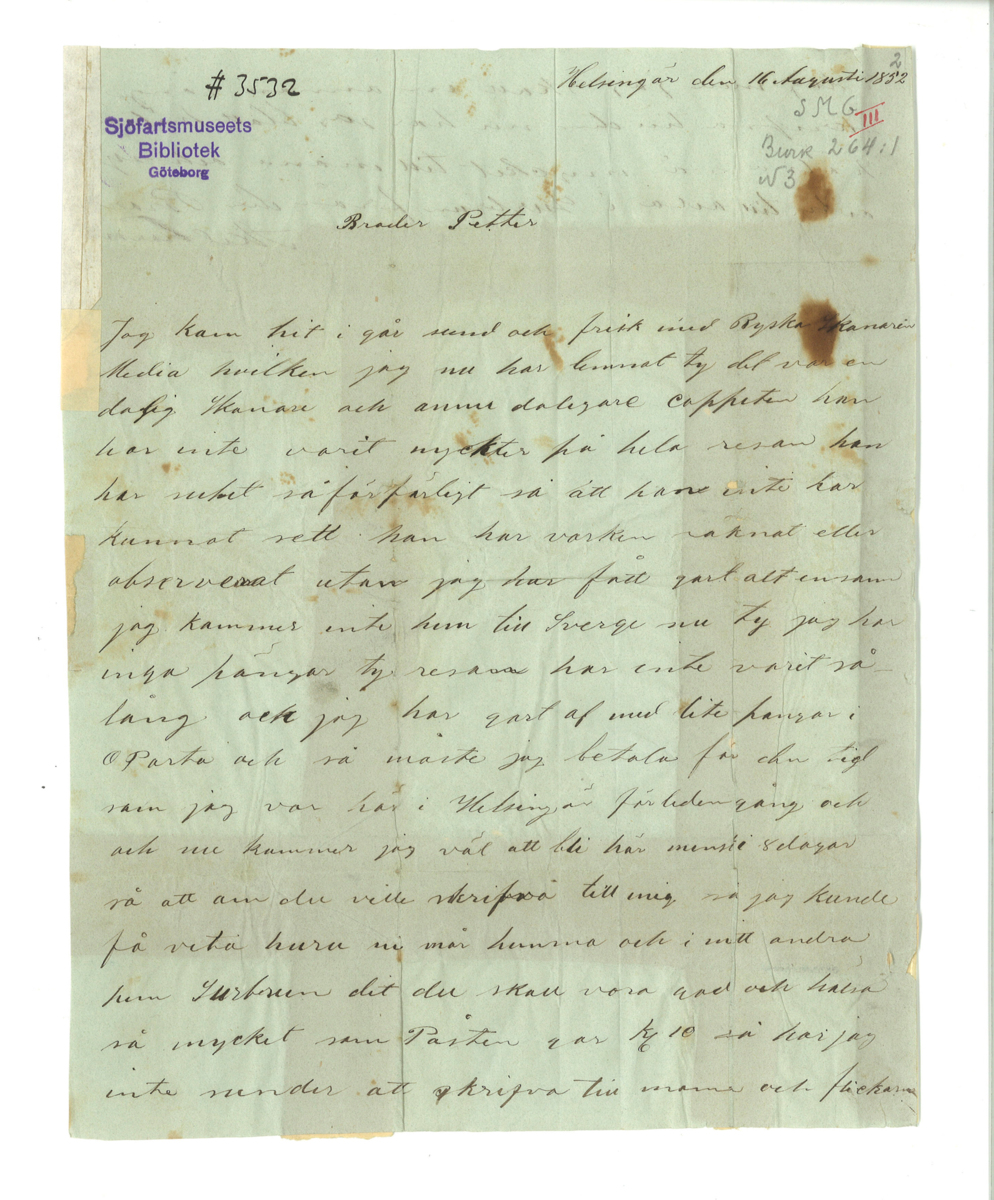 2
# 3532
Helsingör den 16 Augusti 1852
SMG
III
Sjöfartsmuseets
Bibliotek
Göteborg
Burk 264:1
N 3
Broder Petter
Jag kam hit i går sund och frisk med Ryska Skonaren
Media hvilken jag nu har lemnat ty det var en
dålig Skonare och ännu dåligare cappeten han
har inte varit nyckter på hela resan han
har supet så förfärligt så att han inte har
kunnat sett han har varken räknat eller
observerat utan jag har fått gort alt ensam
jag kommer inte hem till Sverge nu ty jag har
inga pängar ty resan har inte varit så
lång och jag har gort af med lite pängar i
OPorto och så måste jag betala för den tid
som jag var här i Helsingör förleden gång och
och nu kommer jag väl att bli här minst 8 dagar
så att om du ville skrifva till mig så jag kunde
få veta huru ni mår hemma och i mitt andra
hem Surbrun dit du skall vara god och hälsa
så mycket som Påsten går Kl 10 så har jag
inte sunder att skrifva till mama och flickorna